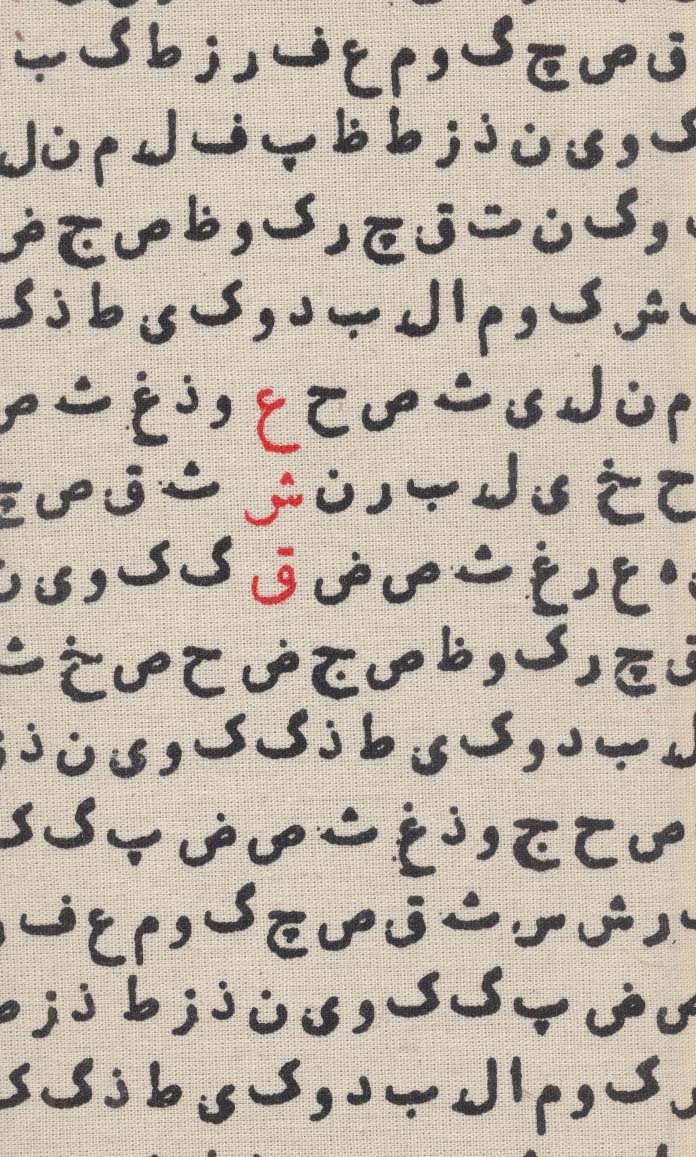 ق ص چ گ و م ع ف ر ز ط گ ب
گ و ی ن ذ ز ط ظ پ ف ل م ن ل
و گ ن ت ق چ ر ک و ظ ص ج ض
ش ک و م ا ل ب د و ک ی ط ذ گ
م ن ل ی ث ص ح ع و ذ غ ث ص
ح خ ی ل ب ر ن ش ث ق ص چ
ه ع ر غ ث ص ض ق گ ک و ی ن
ق چ ر ک و ظ ص ج ض ح ص خ ث
ل ب د و ک ی ط ذ گ ک و ی ن ذ ز
ص ح ج و ذ غ ث ص ض پ گ ک
ر ش س ث ق ص چ گ و م ع ف ر
ص ض پ گ ک و ی ن ذ ز ط ذ ز ط
ک و م ا ل ب د و ک ی ط ذ گ ک